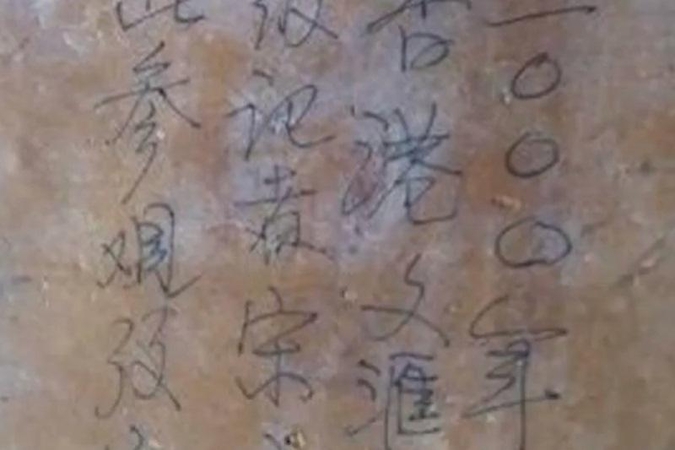 二〇〇〇年
香港文匯
报记者宋
此参观